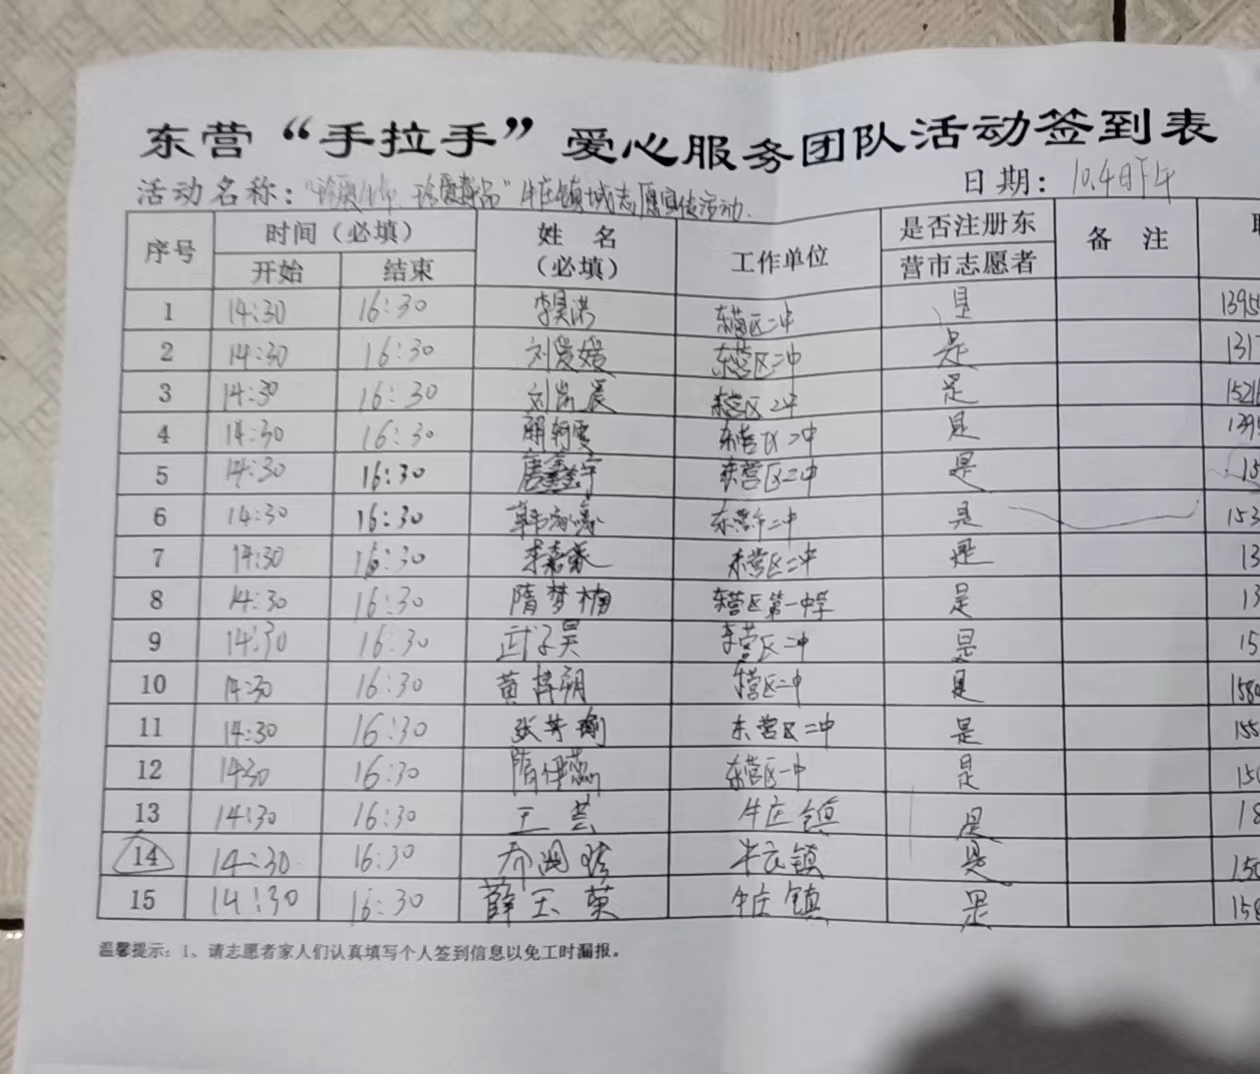 东营“手拉手”爱心服务团队活动签到表
活动名称： 牛庄镇城志愿宣传活动. 日期：10.4日下午
序号 时间（必填） 姓名（必填） 工作单位 是否注册东营市志愿者 备注
开始 结束
1 14:30 16:30 李昊洪 东营区二中 是 1395
2 14:30 16:30 刘媛媛 东营区二中 是 1317
3 14:30 16:30 刘凯晨 东营区二中 是 1526
4 14:30 16:30 东营区二中 是 1395
5 14:30 16:30 唐鑫宇 东营区二中 是 15
6 14:30 16:30 东营市二中 是 153
7 14:30 16:30 李嘉豪 东营区二中 是 13
8 14:30 16:30 隋梦楠 东营区第一中学 是 13
9 14:30 16:30 武子昊 东营区二中 是 15
10 14:30 16:30 黄梓朔 东营区二中 是 158
11 14:30 16:30 东营区二中 是 155
12 14:30 16:30 东营区一中 是 150
13 14:30 16:30 王芸 牛庄镇 是 18
14 14:30 16:30 牛庄镇 是 150
15 14:30 16:30 薛玉英 牛庄镇 是 158
温馨提示：1、请志愿者家人们认真填写个人签到信息以免工时漏报。